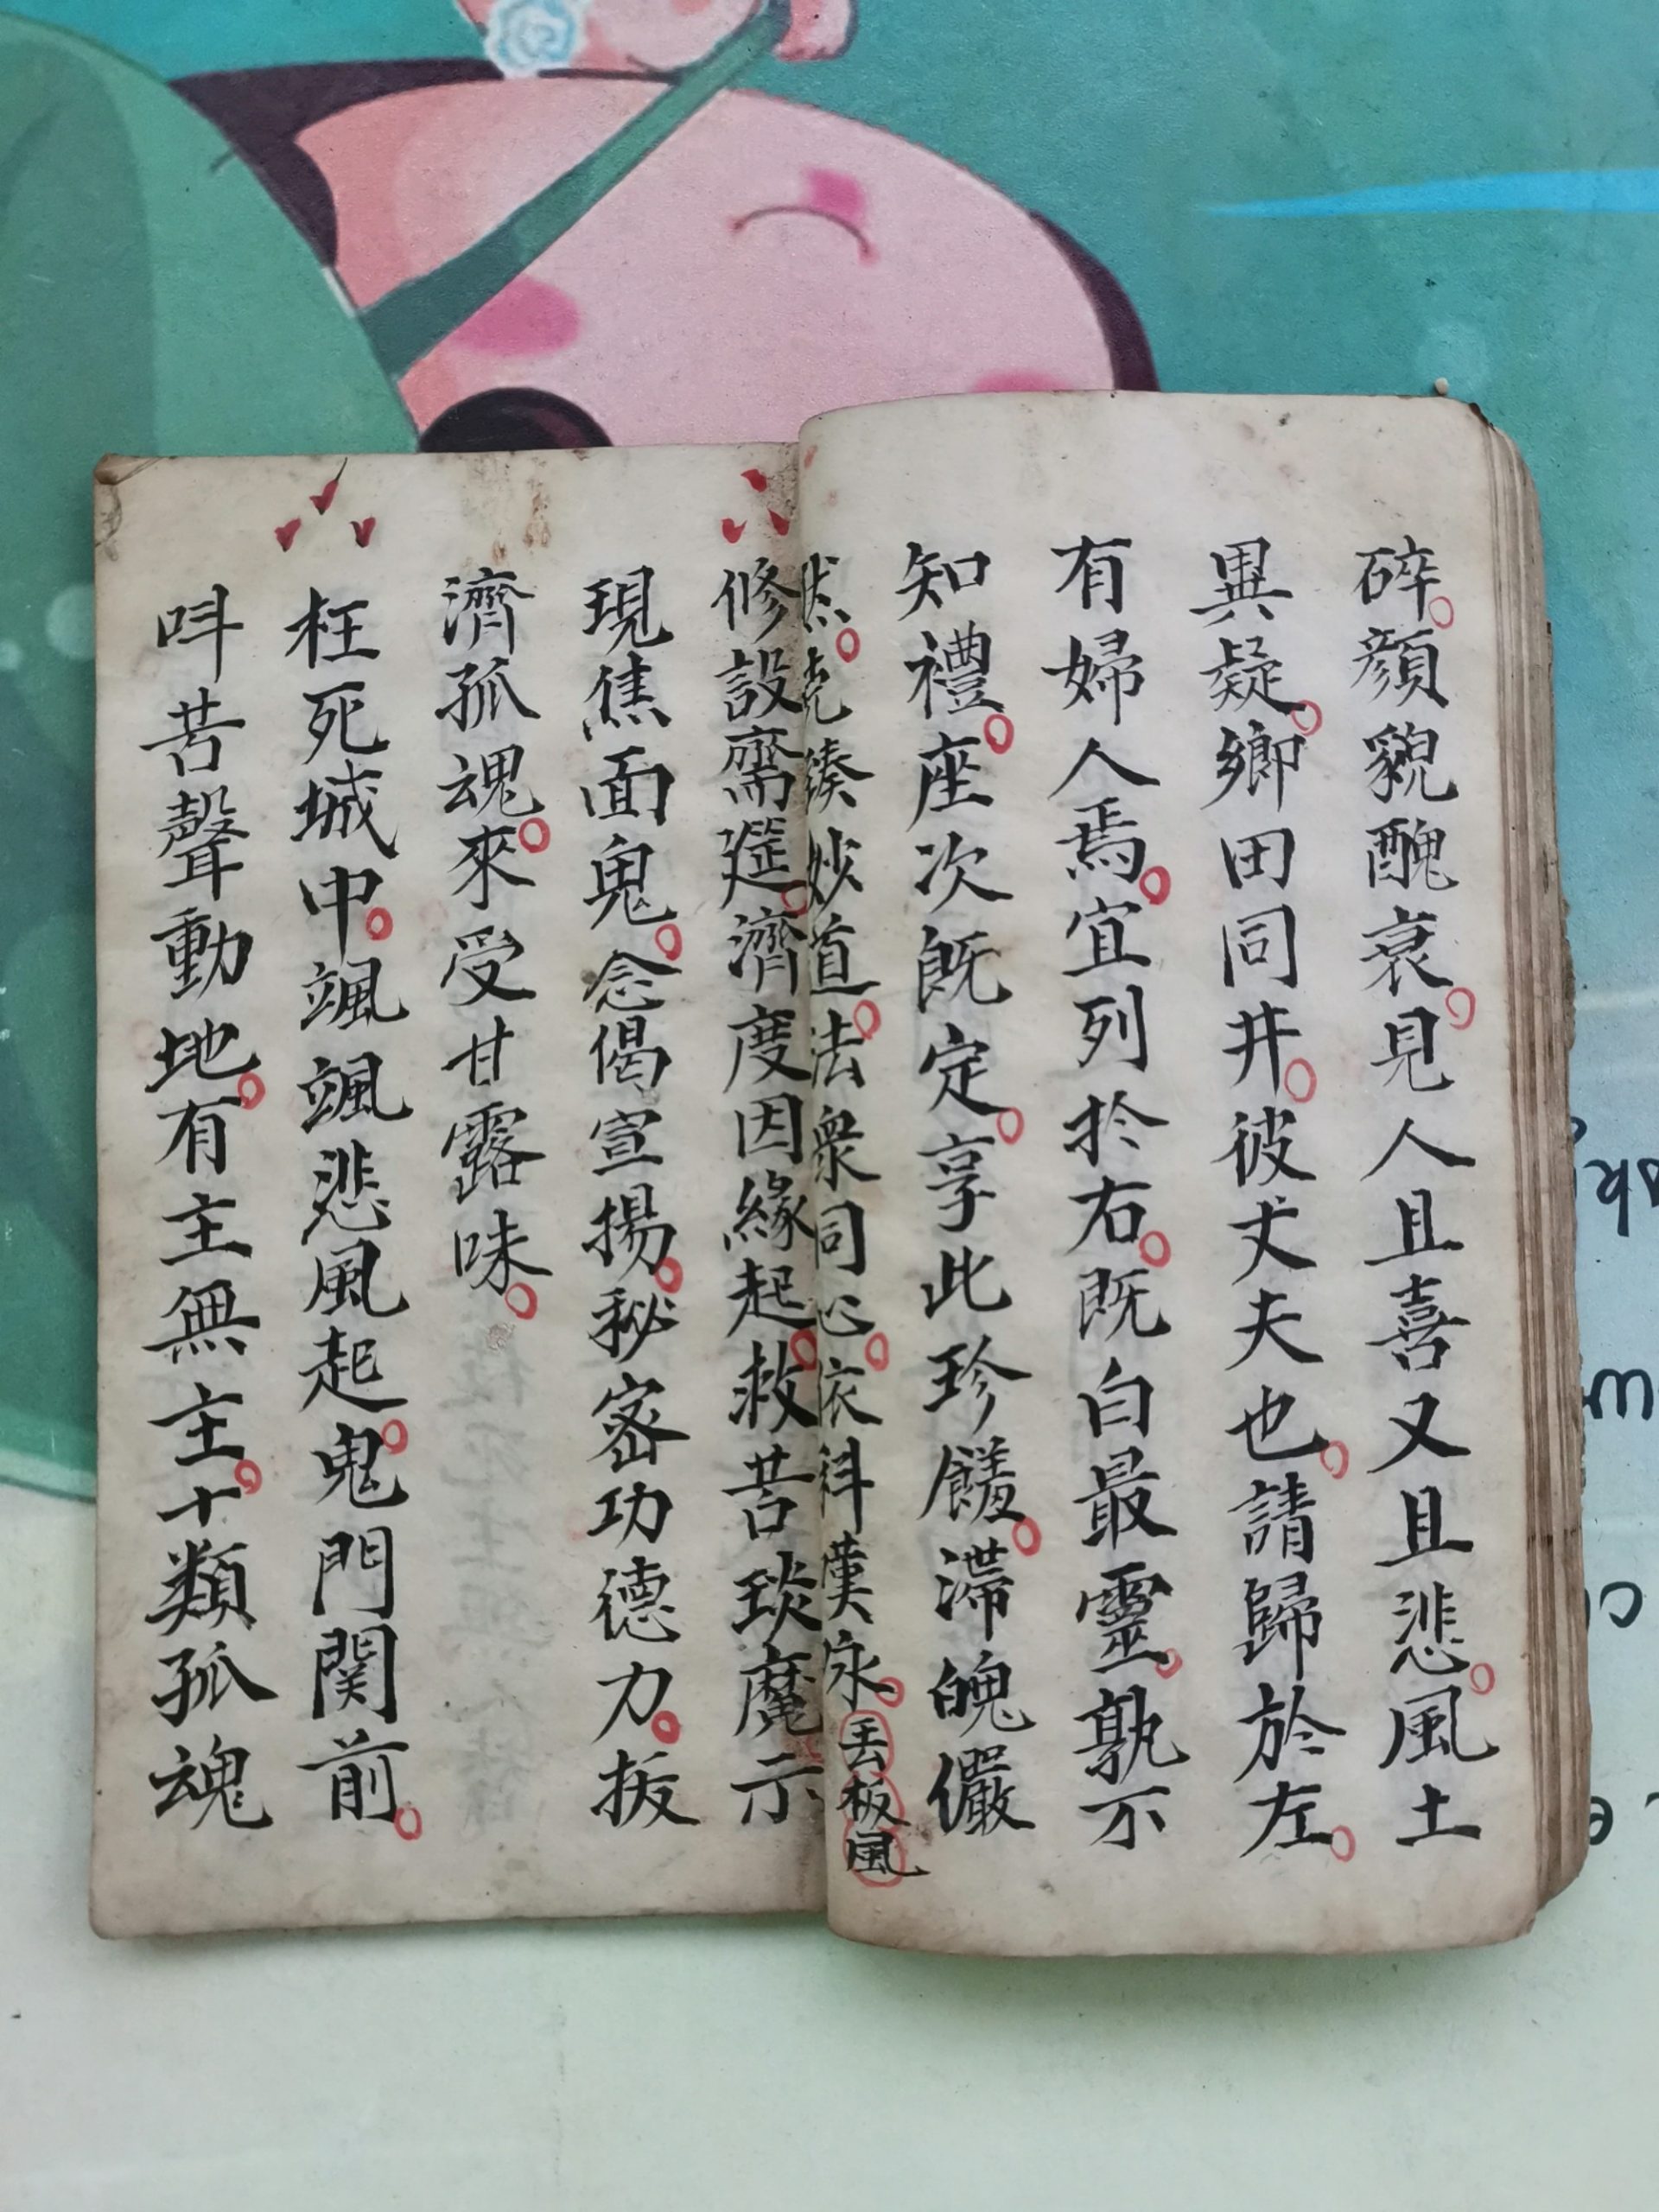 碎。顏貌醜衰。見人且喜又且悲。風土
異疑。鄉田同井。彼丈夫也。請歸於左。
有婦人焉。宜列扵右。既白最靈。孰不
知禮。座次既定。享此珍饈。滯魄儼
然。 妙道。法衆同心。依科嘆咏。丟板風
修設齋筵。濟度因緣起。救苦琰魔示
現焦面鬼。念偈宣揚。秘密功德力。拔
濟孤魂。來受甘露味。
枉死城中。颯颯悲風起。鬼門関前。
呌苦聲動地。有主無主。十類孤魂